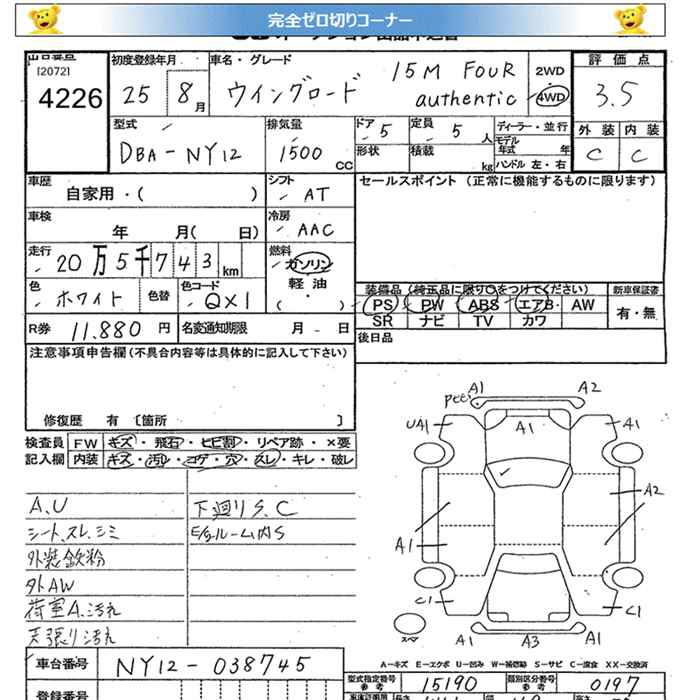 完全ゼロ切りコーナー
出品番号
[2072]
4226
初度登録年月
25 8月
車名・グレード
ウイングロード
15M FOUR
authentic
2WD
4WD
評価点
3.5
外装 内装
C C
型式
DBA-NY12
排気量
1500 CC
ドア 5
形状
定員 5 人
積載 kg
ディーラー・並行
モデル年式 年
ハンドル 左・右
車歴
自家用・( )
シフト
AT
セールスポイント (正常に機能するものに限ります)
車検
年 月( 日)
冷房
AAC
走行
20万5千743km
燃料
ガソリン
軽油
( )
色
ホワイト
色替
色コード
QX1
装備品(純正品に限り○をつけてください)
PS PW ABS エアB AW
SR ナビ TV カワ
新車保証書
有・無
R券 11,880 円
名変通知期限 月 日
後日品
注意事項申告欄(不具合内容等は具体的に記入して下さい)
修復歴 有 〔箇所 〕
検査員記入欄
FW キズ・飛石・ヒビ割・リペア跡・×要
内装 キズ・汚レ・コゲ・穴・スレ・キレ・破レ
A,U
シート,スレ,シミ
外装鉄粉
外AW
荷室A,汚れ
天張り汚れ
下廻りS,C
E/gルーム内S
A1 A2
UA1 A1 A1
A2
A1
C1 C1
スペア
A1 A3 A1
A-キズ E-エクボ U-凹み W-補修跡 S-サビ C-腐食 XX-交換済
車台番号
NY12-038745
型式指定番号
参考
15190
類別区分番号
参考
0197
登録番号